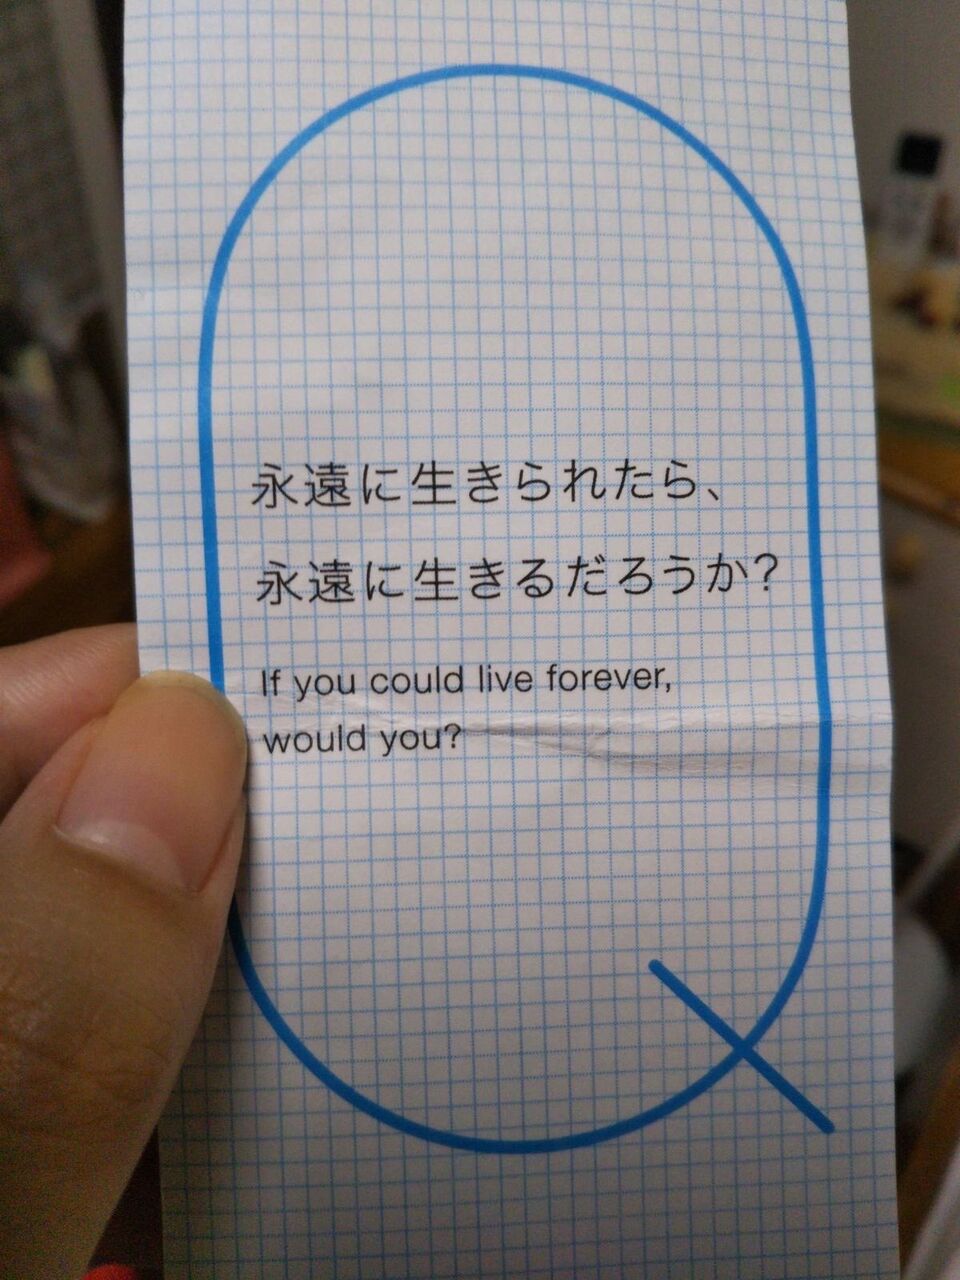 永遠に生きられたら、
永遠に生きるだろうか?
If you could live forever,
would you?
Q